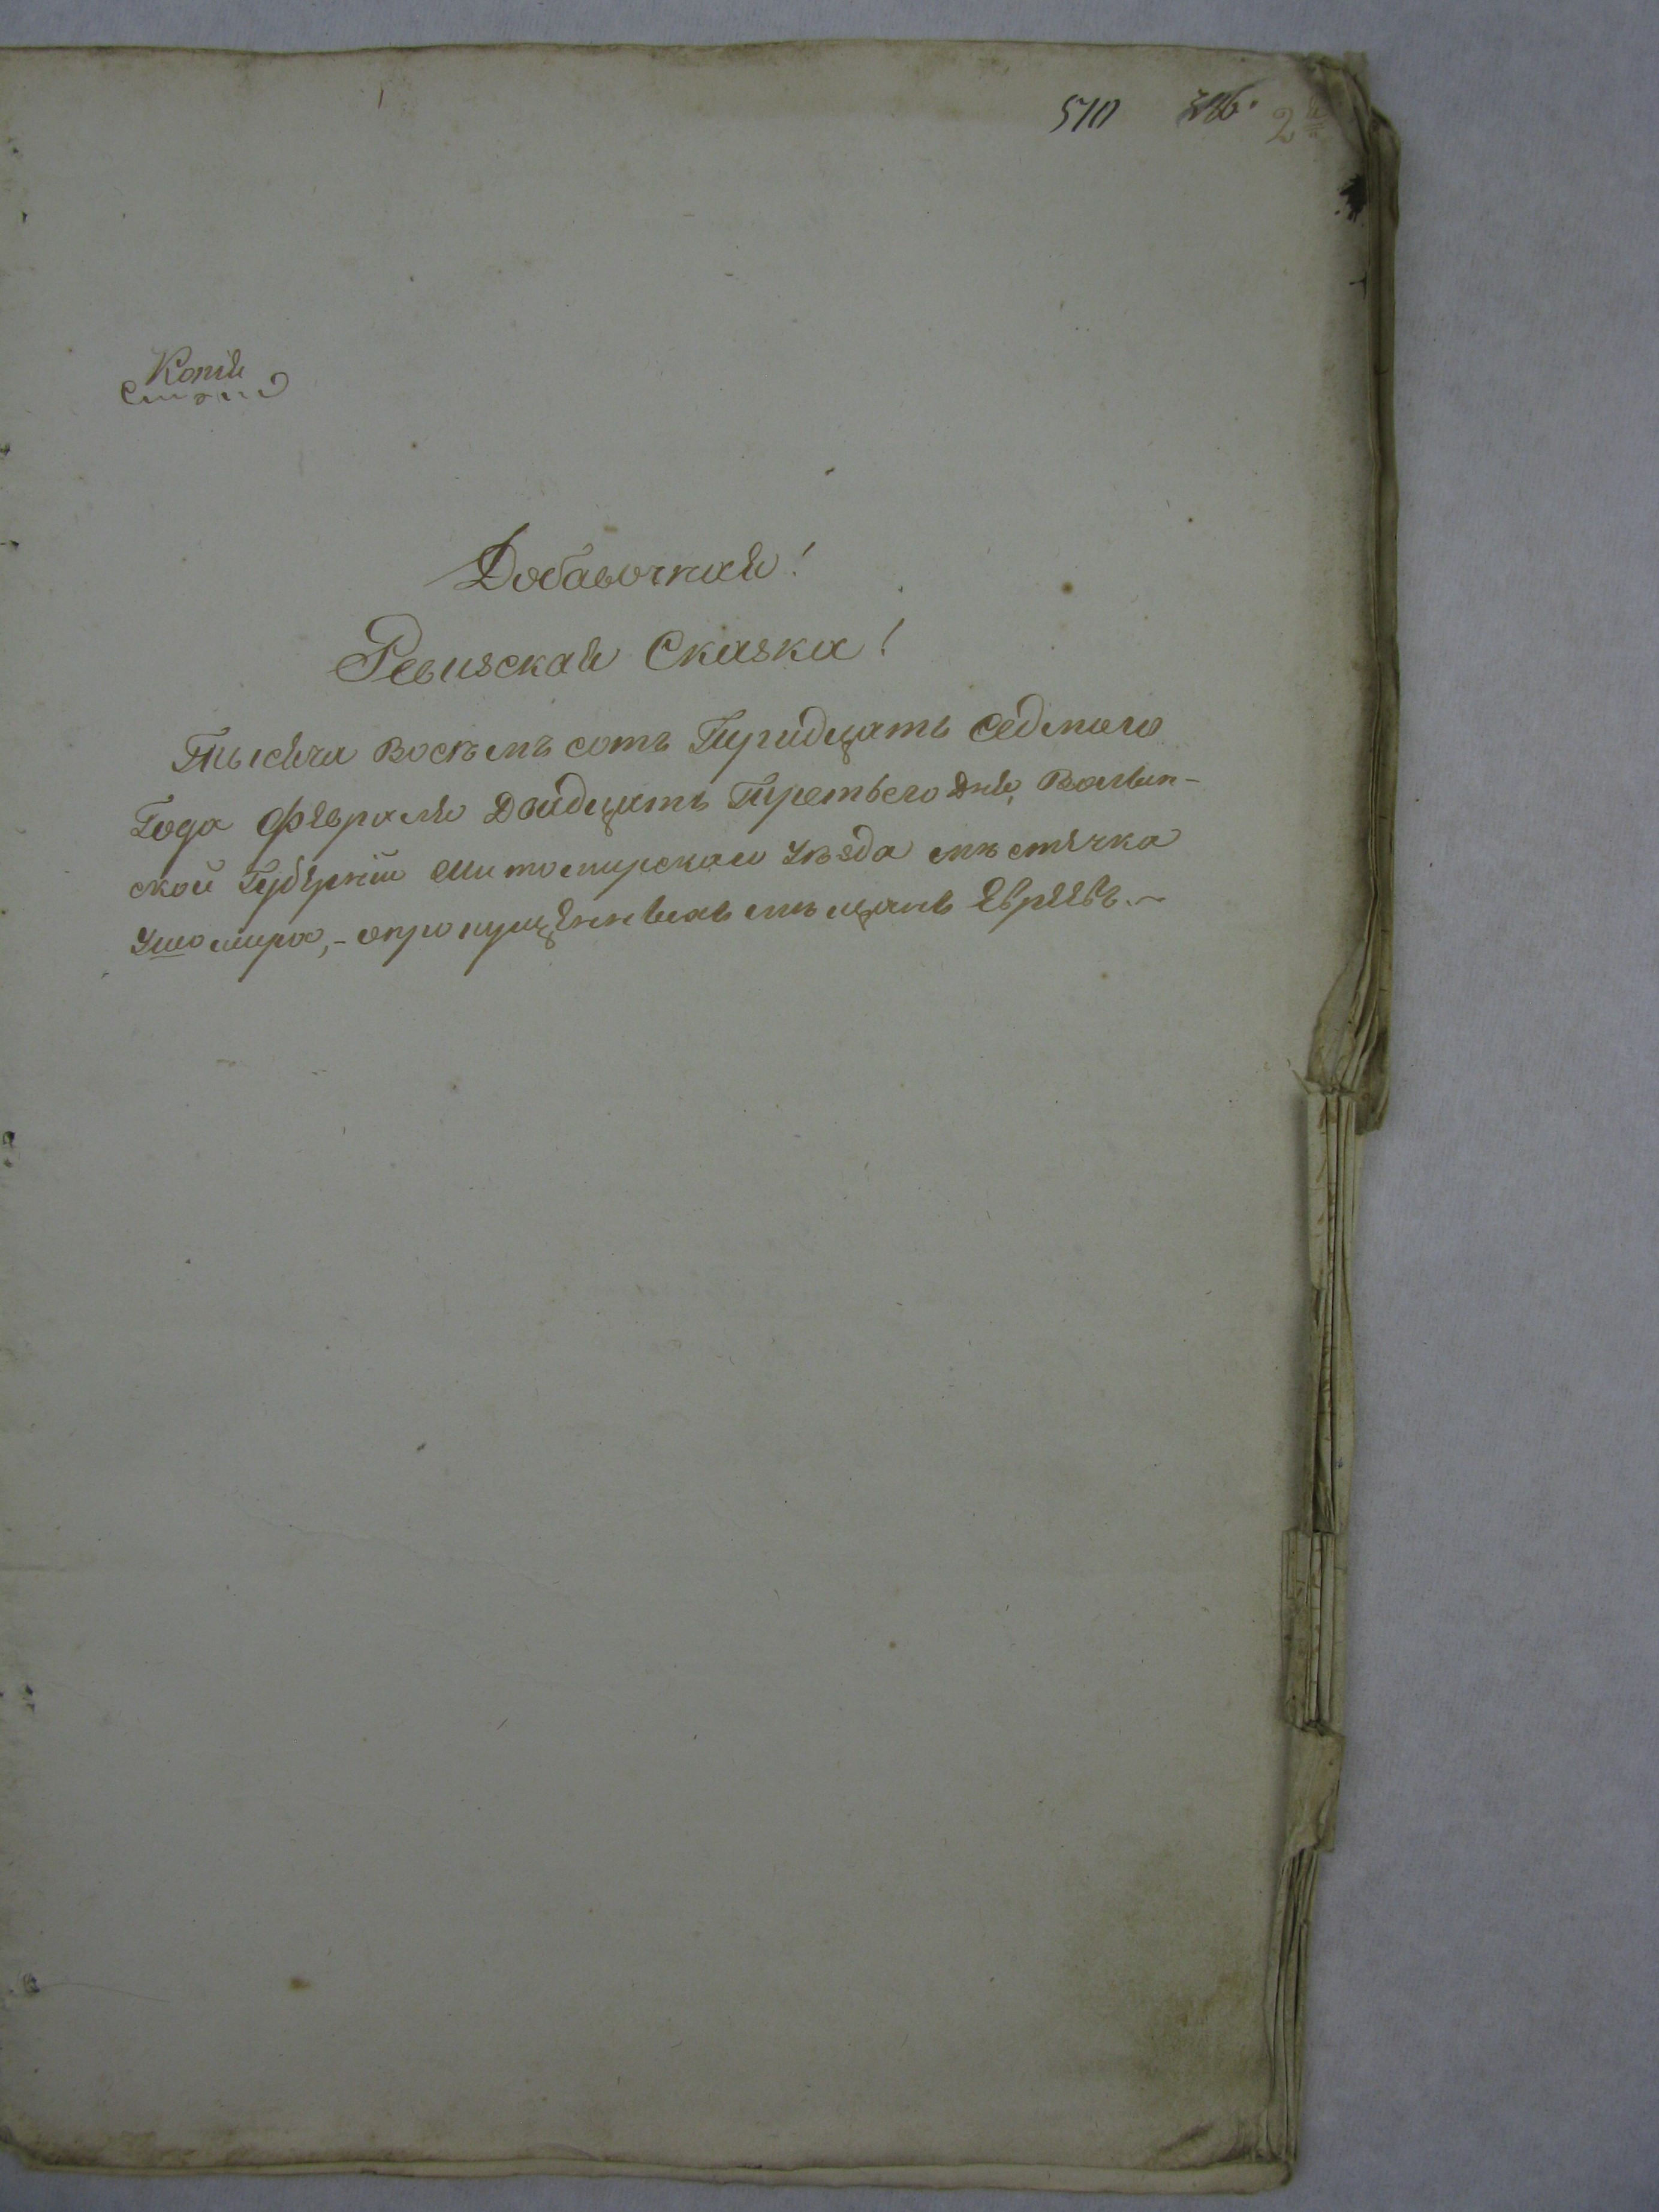 570
Копія
Добавочная!
Ревизская Сказка!
Тысяча Восѣмъ сотъ Тридцать Седмого
Года Февраля Двадцать Третьего дня, Волын-
ской Губерніи Житомирскаго Уѣзда мѣстечка
Ушомира, - опропущенныхъ мѣщанъ Евреевъ. ~